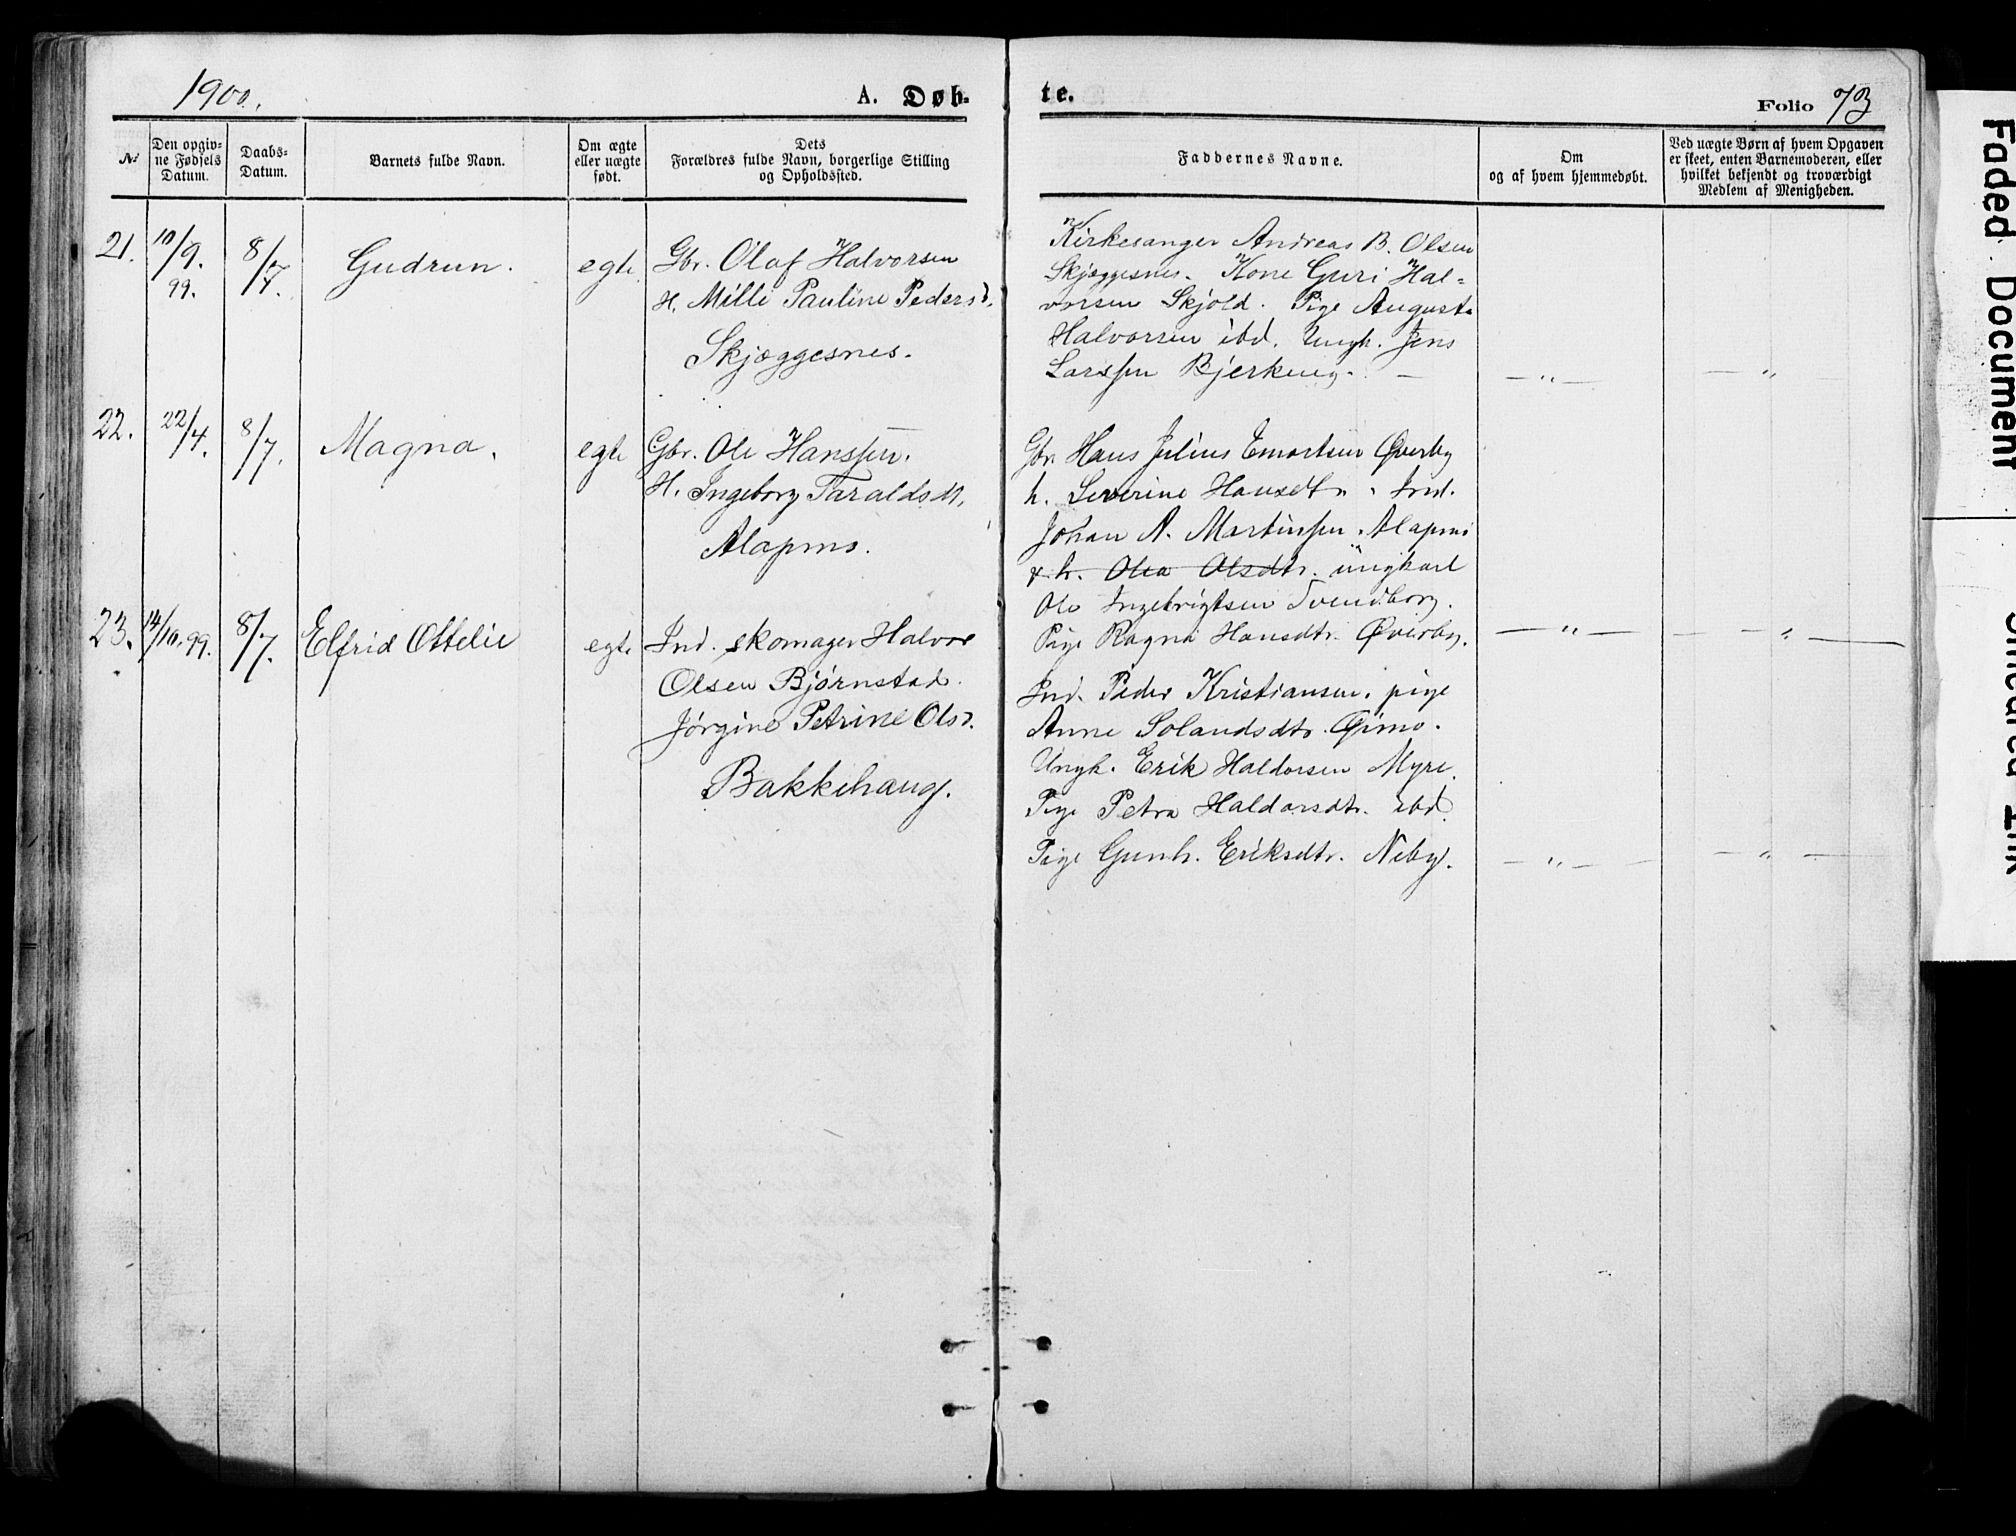 1900.
A. Døb-
te.
Folio 73
№
Den opgiv-
ne Fødsels
Datum.
Daabs-
Datum.
Barnets fulde Navn.
Om ægte
eller uægte
født.
Dets
Forældres fulde Navn, borgerlige Stilling
og Opholdssted.
Faddernes Navne.
Om
og af hvem hjemmedøbt.
Ved uægte Børn af hvem Opgaven
er skeet, enten Barnemoderen, eller
hvilket bekjendt og troværdigt
Medlem af Menigheden.
21.
10/9.
99.
8/7.
Gudrun.
egte
Gbr. Olaf Halvorsen
H. Milli Pauline Pedersd.
Skjæggesnes.
Kirkesanger Andreas B. Olsen
Skjæggesnes. Kone Guri Hal-
vorsen Skjold. Pige Augusta
Halvorsen ibd. Ungk. Jens
Larssen Bjerkeng.
— „ —
— „
22.
22/4.
8/7.
Magna.
egte
Gbr. Ole Hanssen.
H. Ingeborg Taraldsdt.
Alapmo.
Gbr. Hans Julius Emortsen Øverby
h. Severine Hansdtr. Ind.
Johan A. Martinssen. Alapmo
& h. Olea Olsdtr. ungkarl
Ole Ingebrigtsen Svendborg.
Pige Ragna Hansdtr. Øverby.
— „ —
— „ —
23.
14/10. 99.
8/7.
Elfrid Ottelie
egte
Ind. skomager Halvor
Olsen Bjørnstad.
Jørgine Petrine Olsd.
Bakkehaug.
Ind. Peder Kristiansen. pige
Anne Solandsdtr. Gimo.
Ungk. Erik Haldorsen Myre.
Pige Petra Haldorsdtr. ibd.
Pige Gunh. Eriksdtr. Neby.
— „ —
— „ —
Faded Document